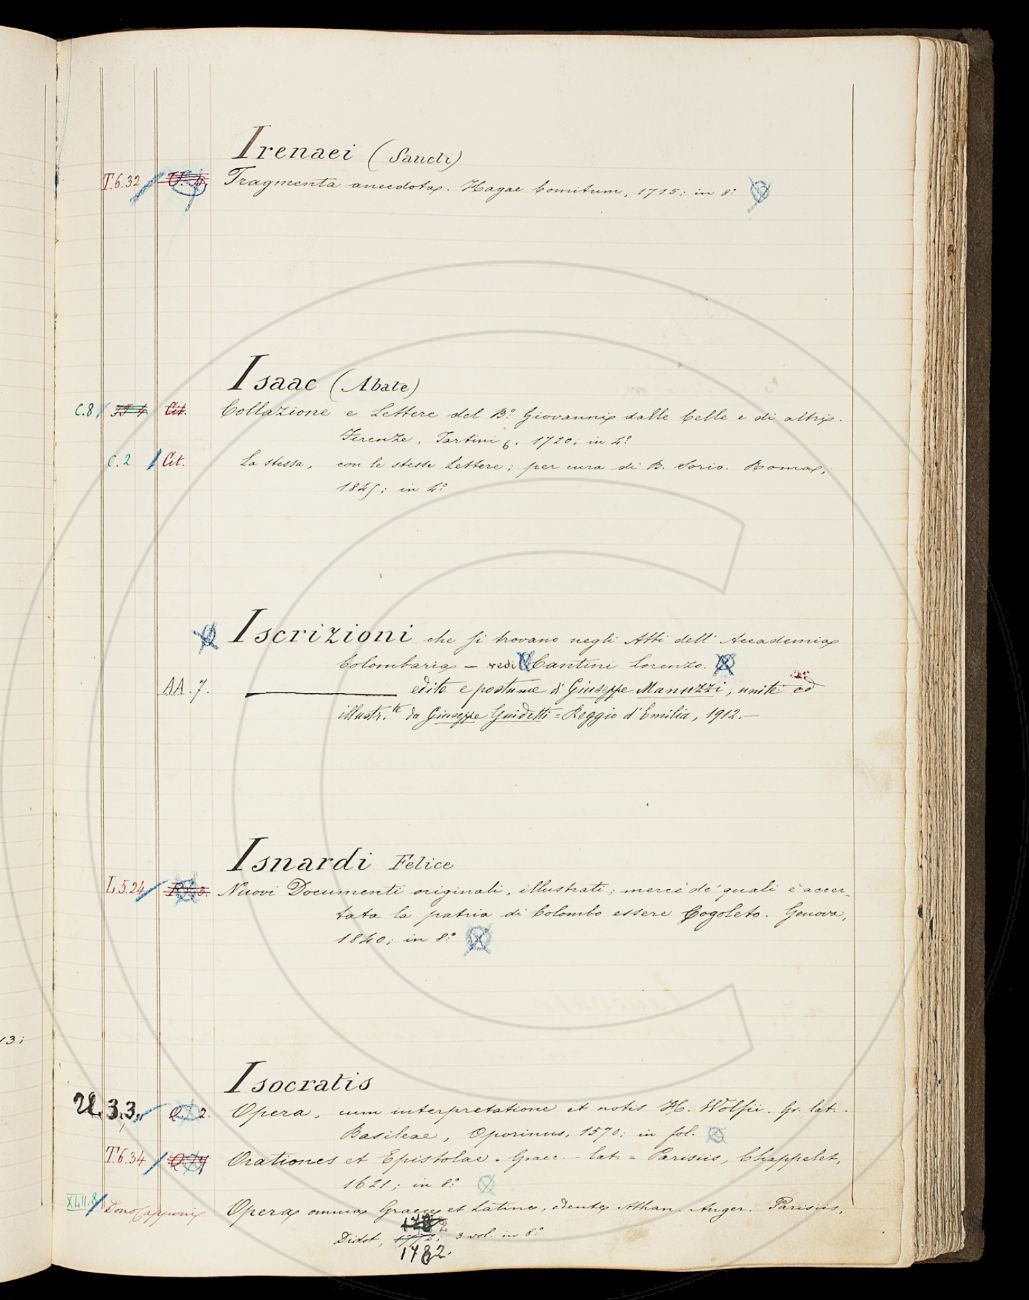 Irenaei (Sancti)
T.6.32 Fragmenta anecdota. Hagae Comitum, 1715; in 8.°
Isaac (Abate)
C.8 Cit. Collazione e Lettere del B.° Giovanni dalle Celle e di altri.
Firenze, Tartini 1720; in 4.°
C.2 Cit. La stessa, con le stesse Lettere; per cura di B. Sorio. Roma,
1845; in 4.°
Iscrizioni che si trovano negli Atti dell' Accademia
Colombaria – vedi Cantini Lorenzo.
AA.7. edite e postume di Giuseppe Manuzzi, unite ed
illustr.te da Giuseppe Guidetti = Reggio d'Emilia, 1912.–
Isnardi Felice
L.5.24 Nuovi Documenti originali, illustrati; mercè de' quali è accer-
tata la patria di Colombo essere Cogoleto. Genova,
1840; in 8.°
13;
Isocratis
3.3. Q. 2. Opera, cum interpretatione et notis H. Wolfii. Gr. lat.
Basileae, Oporinus, 1570; in fol.
T.6.34 Orationes et Epistolae. Graec. - lat. = Parisiis, Chappelet,
1621; in 8.°
XLII.8 Dono Capponi Opera omnia Graece et Latine, edente Athan. Auger. Parisiis,
Didot, 3 vol. in 8.°
1782.